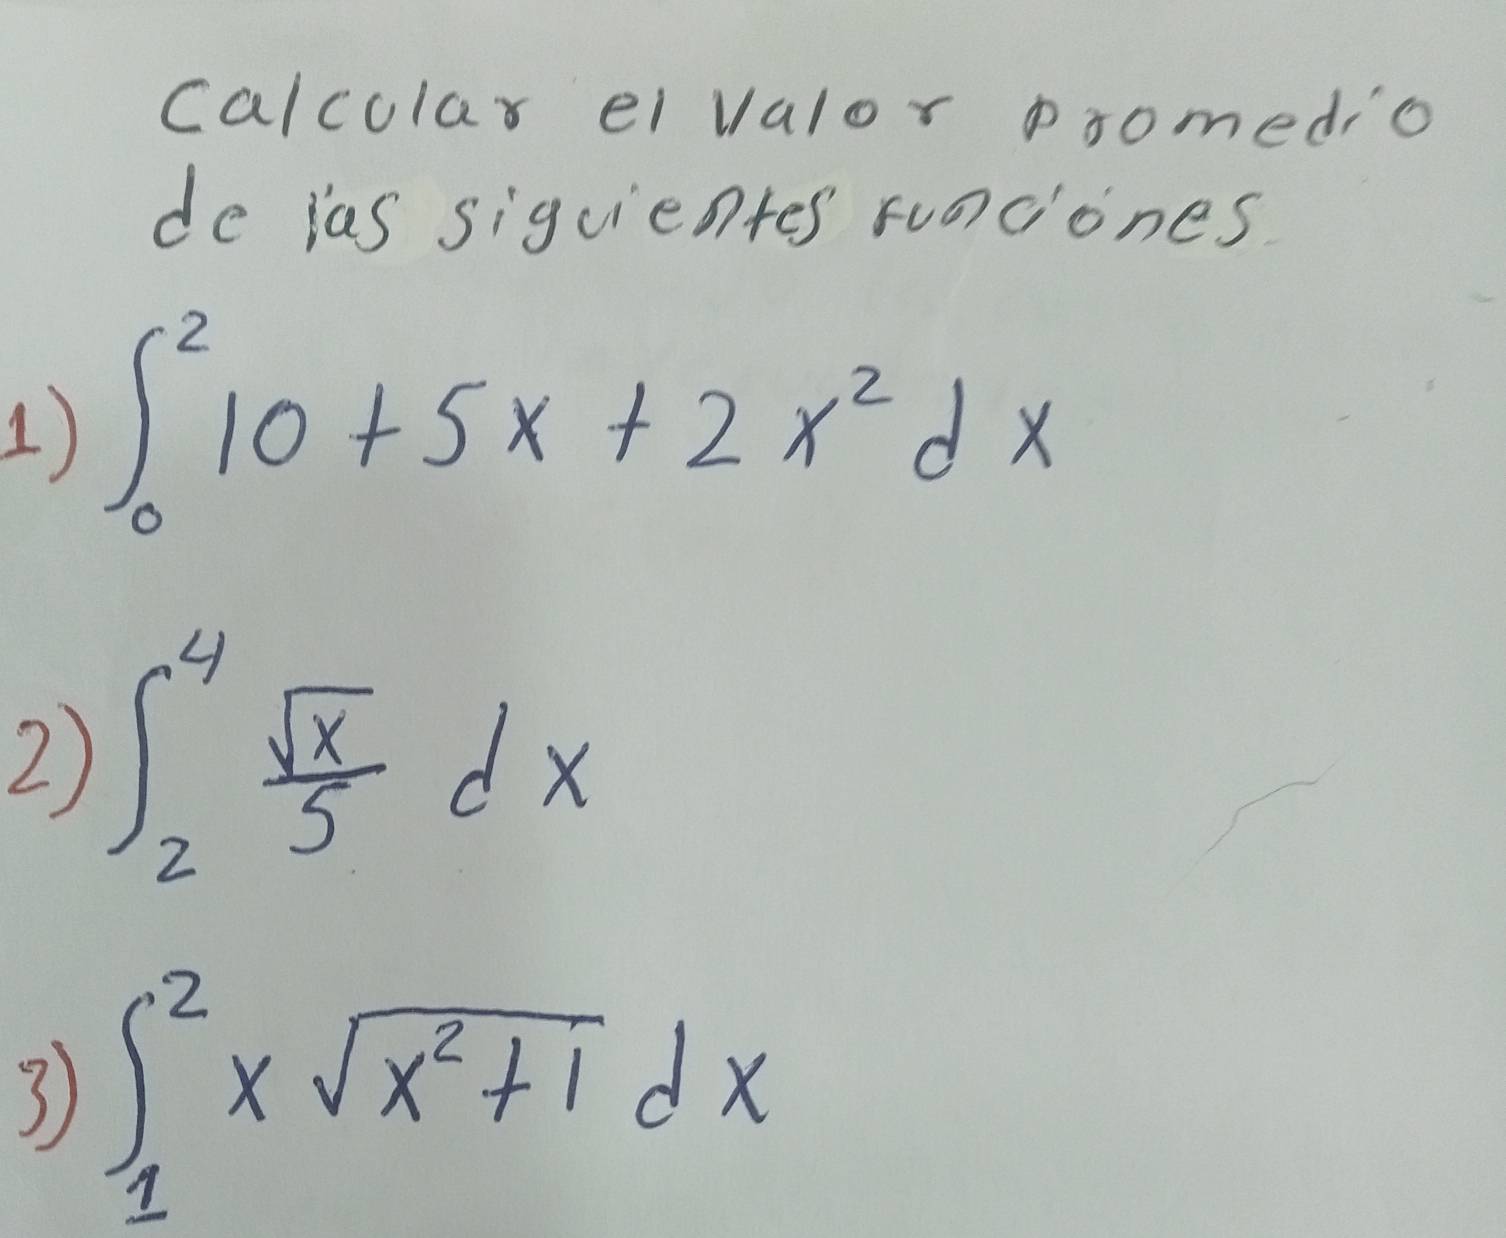 Calcular el Valor promedio
de las siguientes funciones.
1) ∫₀² 10 + 5x + 2x² dx
2) ∫₂⁴ √x/5 dx
3) ∫₁² x √(x²+1) dx